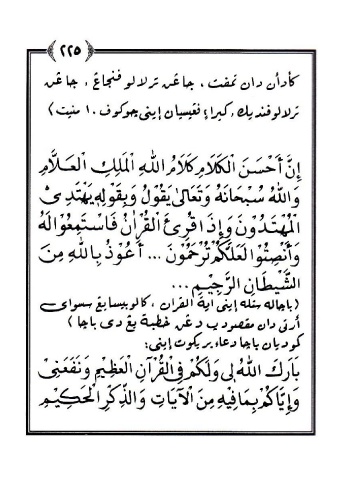 ٢٢٥
كأدأن دان تمفت، جاڠن ترلالو فنجاڠ، جاڠن
ترلالو فنديك، كيرا٢ فڠيسيان إيني چوكوف ١٠ منيت)
إِنَّ أَحْسَنَ الْكَلَامِ كَلَامُ اللهِ الْمَلِكِ الْعَلَّامِ
وَاللهُ سُبْحَانَهُ وَتَعَالَى يَقُوْلُ وَبِقَوْلِهِ يَهْتَدِى
الْمُهْتَدُوْنَ وَإِذَا قُرِئَ الْقُرْاٰنُ فَاسْتَمِعُوْا لَهُ
وَأَنْصِتُوْا لَعَلَّكُمْ تُرْحَمُوْنَ ... أَعُوْذُ بِاللهِ مِنَ
الشَّيْطَانِ الرَّجِيْمِ ...
(باچاله ستله إيني أية القرأن، كالو بيسا يڠ سسواي
أرتي دان مقصودپ دڠن خطبة يڠ دي باچا)
كموديان باچا دعاء بريكوت إيني:
بَارَكَ اللهُ لِى وَلَكُمْ فِى الْقُرْآنِ الْعَظِيْمِ وَنَفَعَنِىْ
وَإِيَّاكُمْ بِمَا فِيْهِ مِنَ الْآيَاتِ وَالذِّكْرِ الْحَكِيْمِ